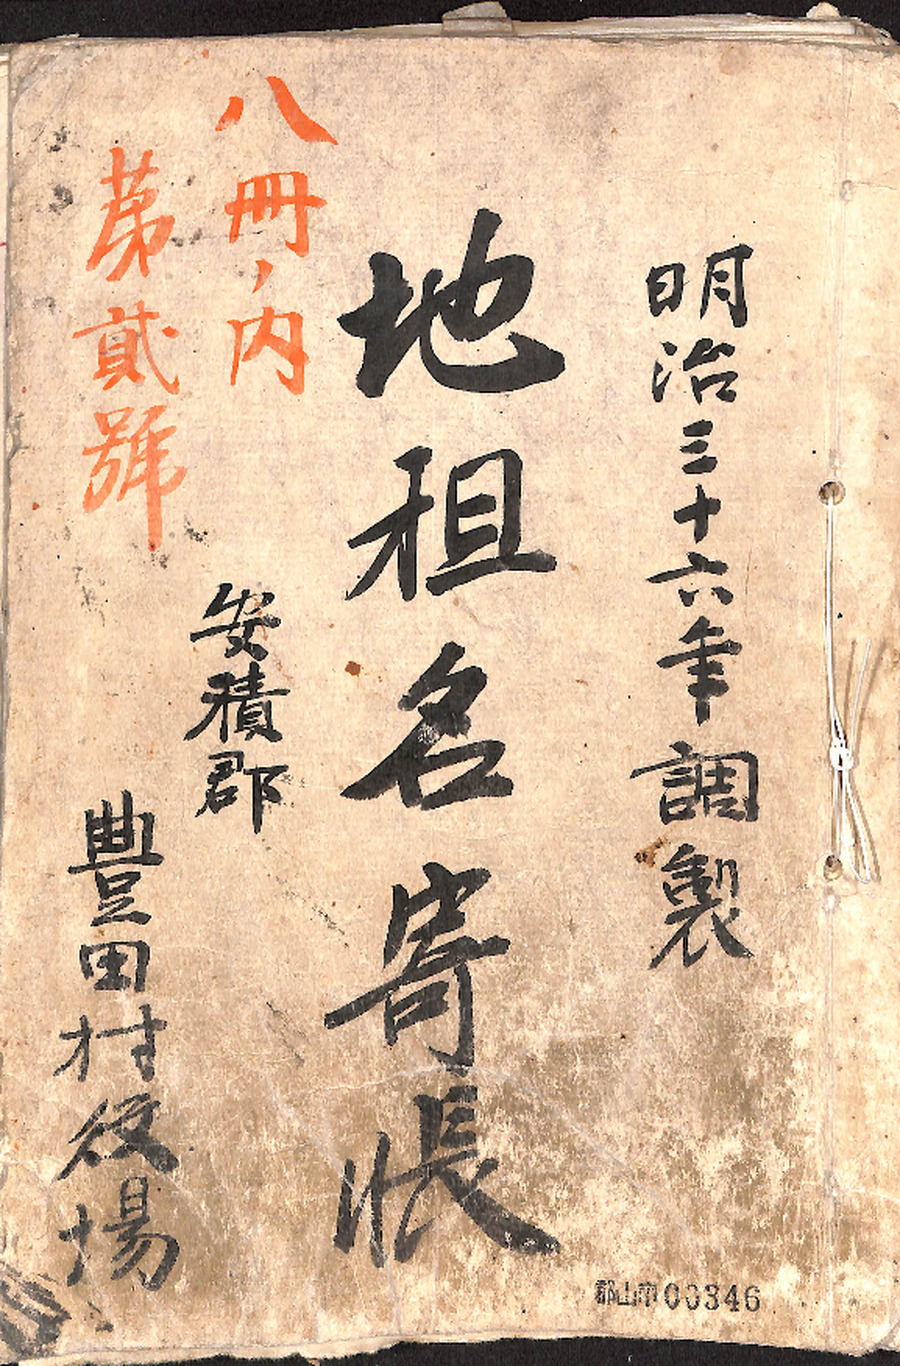 明治三十六年調製
地租名寄帳
八冊ノ内
第貳號
安積郡
豊田村役場
郡山市00346